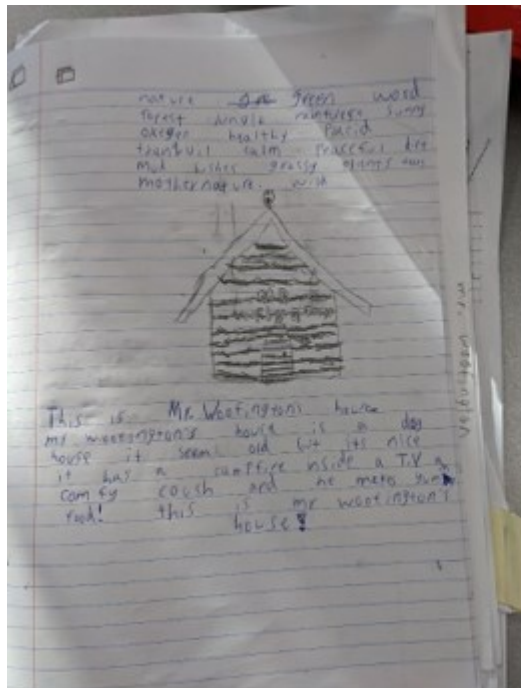 nature green word
forest Jungle rainforest sunny
oxigen healthy Placid
tranquil calm Peaceful dirt
mud bushes grassy plants
mothernature.
This is Mr. Woofington's house
mr woofington's house is a dog
house it seems old but its nice
it has a campfire inside a T.V a
comfy coush and he
food! this is mr wooftington's
house!
mr. wooftington